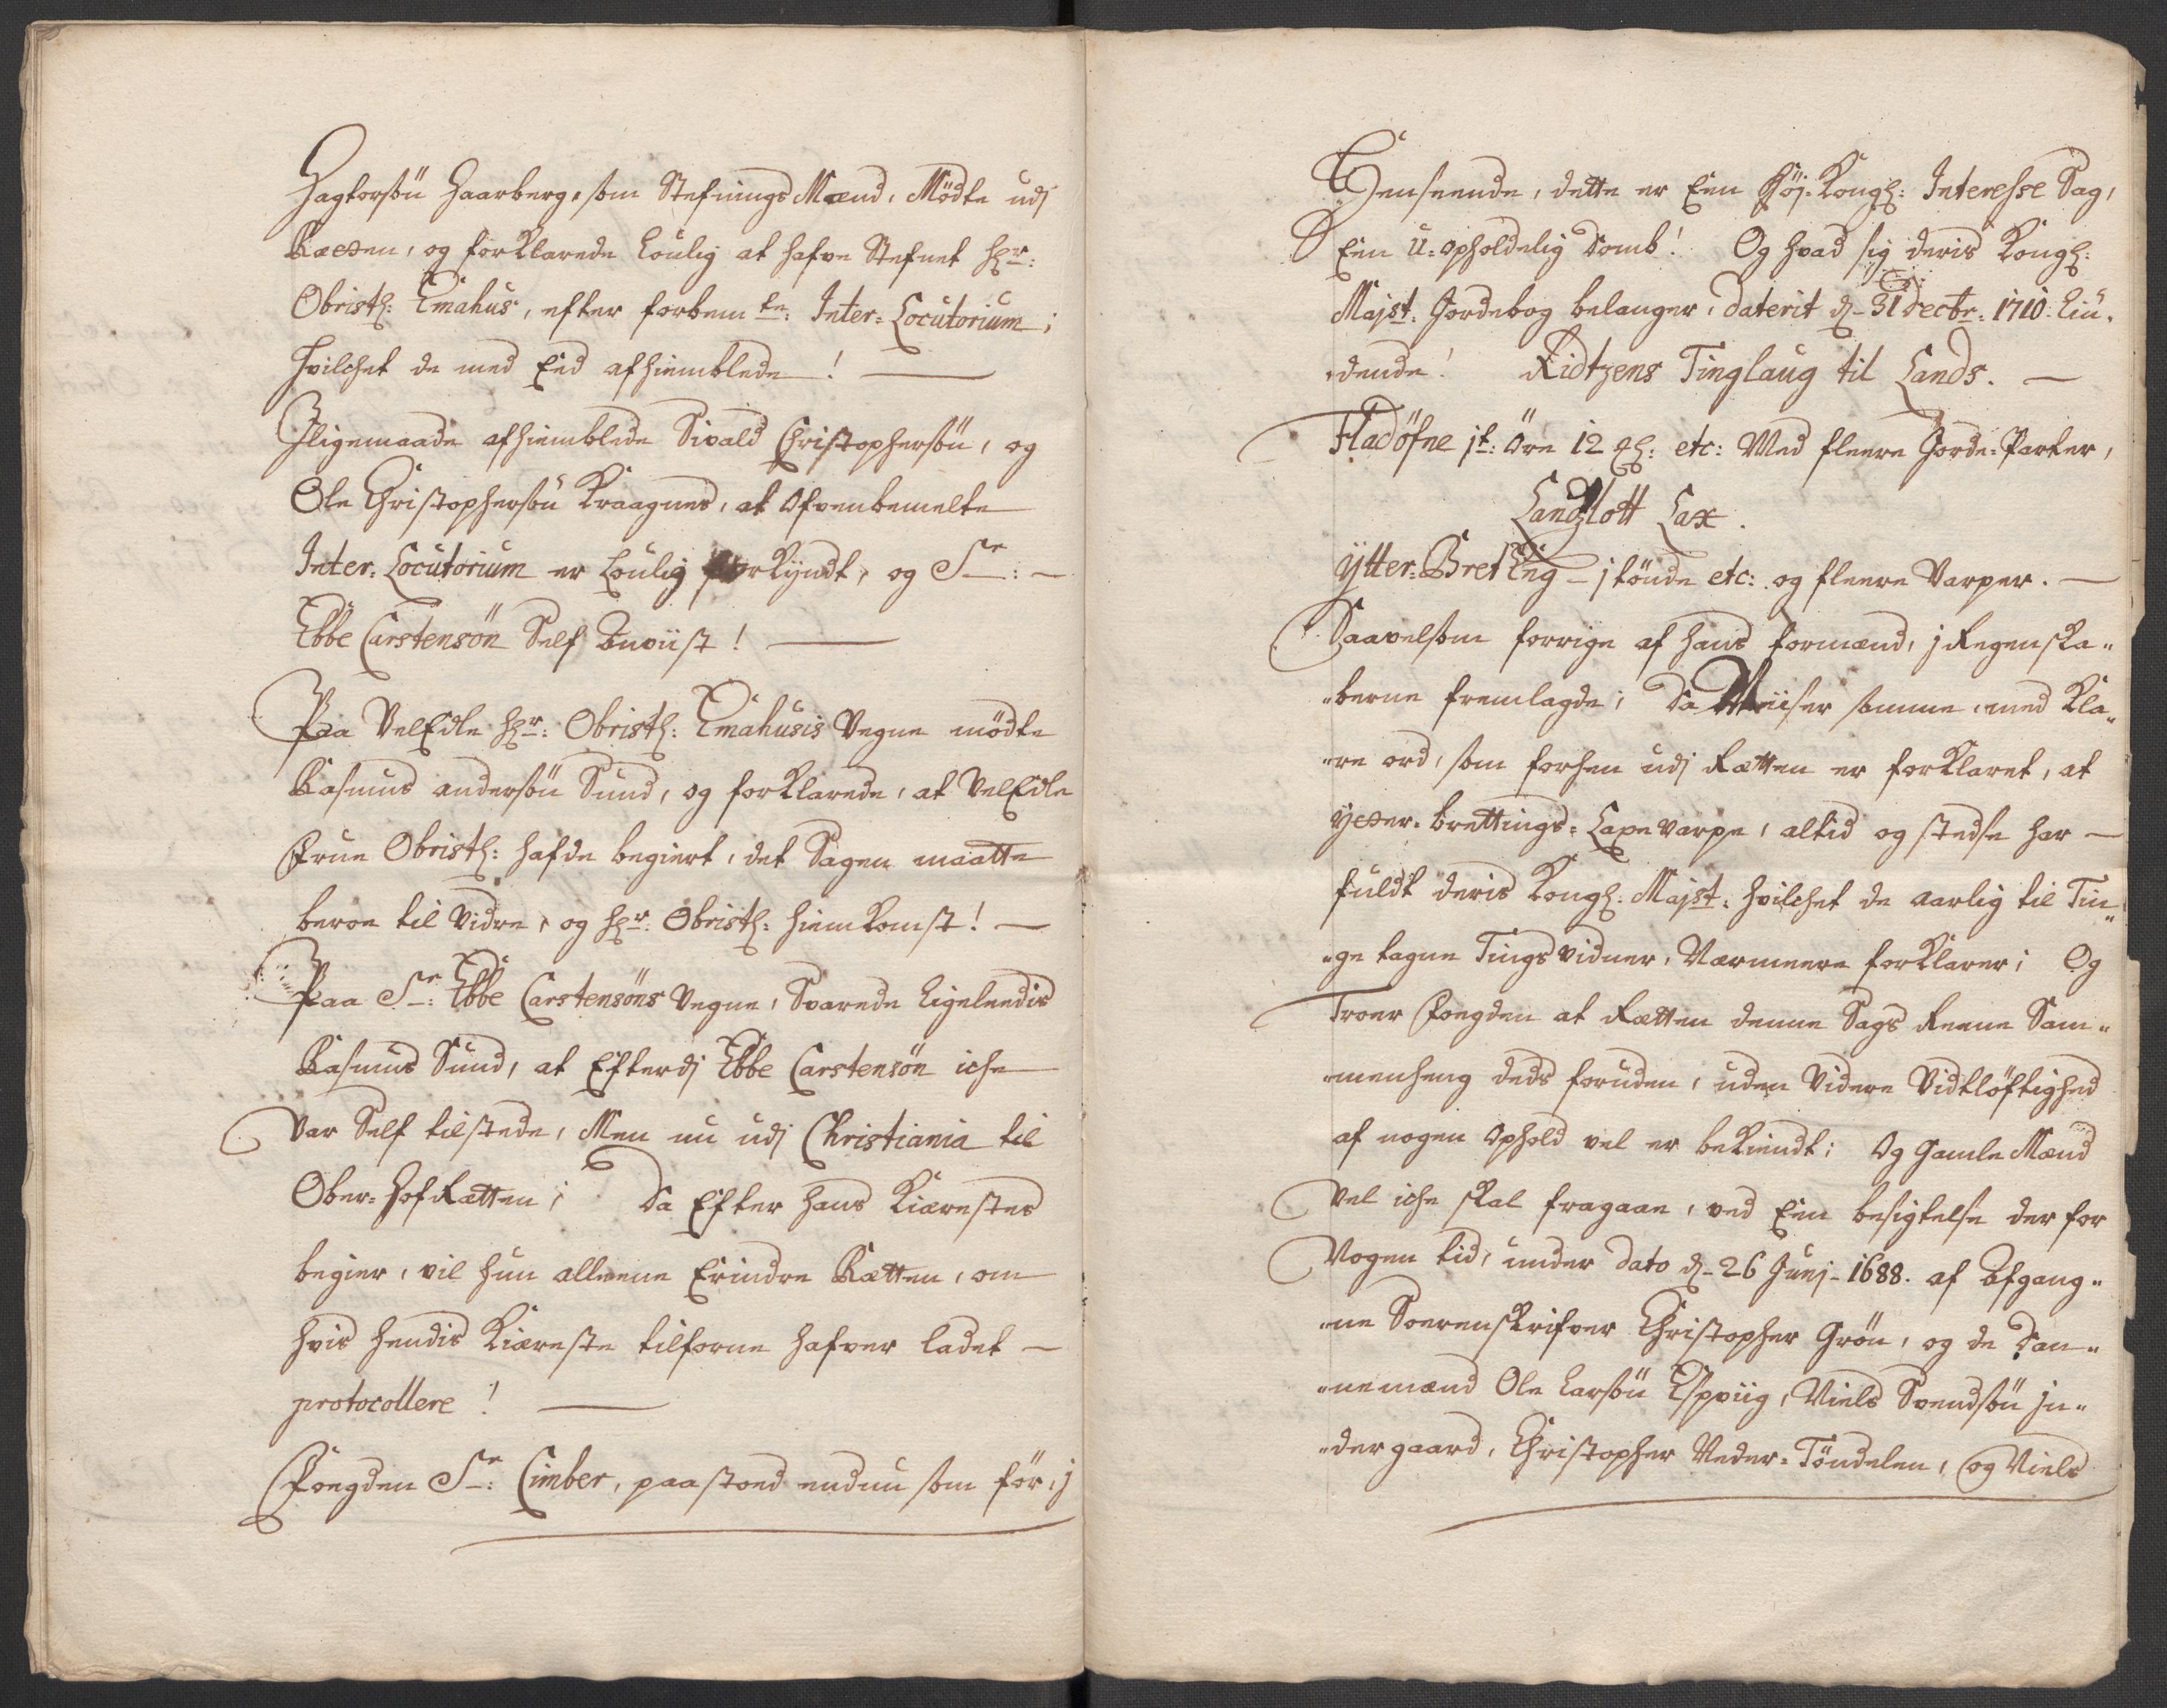 Hagtorsøn Haarberg, som Stefnings Mænd, Mödte udj
Rætten, og forklarede Loulig at hafve Stefnet Hr:
Obristl: Emahus, efter forbemte: Inter=Locutorium;
Hvilchet de med Eed afhiemblede! —
Jligemaade afhiemblede Sivald Christophersøn, og
Ole Christophersøn Kraagnes, at Ofvenbemelte
Inter=Locutorium er Loulig forkyndt, og Sr: —
Ebbe Carstensön Self Anviist! —
Paa VelEdle Hr: Obristl: Emahusis Vegne mödte
Rasmus andersøn Sund, og forklarede, at VelEdle
Frue Obristl: hafde begiert, det Sagen maatte
beroe til Vidre, og Hr: Obristl: hiemkomst! —
Paa Sr: Ebbe Carstensöns Vegne, Svarede Ligeleedis
Rasmus Sund, at Efterdj Ebbe Carstensön iche
var Self tilstede, Men nu udj Christiania til
Ober=HofRetten; Da Efter hans Kiærestes
begier, vil hun alleene Erindre Rætten, om
hvis hendis Kiæreste tilforne hafver ladet —
protocollere! —
Fogden Sr: Cimber, paastoed endnu som för, j
Henseende, dette er Een Höj=Kongl: Interesse Sag,
Een u=opholdelig Domb! Og hvad sig deris Kongl:
Majst: Jordebog belanger, daterit d. 31 Decbr: 1710. Liu¬
¬dende! Ridtzens Tinglaug til Lands. —
Fladöfne jt: Öre 12 etc: Med fleere Jorde=Parter,
Landzlott Lax.
Ytter=Breteng – j tönde etc: og fleere Varper. —
Saavelsom forrige af hans formænd, j Regenska¬
¬berne fremlagde; Da Viiser somme, med Kla¬
¬re ord, som forhen udj Rætten er forklaret, at
ytter=brettings=Laxevarpe, altid og stedse har —
fuldt deris Kongl: Majst: hvilchet de aarlig til Tin¬
¬ge tagne Tingsvidner, Nærmeere forklarer; Og
Troer Fogden at Rætten denne Sags Reene Sam¬
¬menheng deds foruden, uden Videre Vidtlöftighed
af nogen Ophold vel er bekiendt; Og Gamle Mænd
vel iche skal fragaae, ved Een besigtelse der for
Nogen tid, under dato d. 26 Junj 1688. af Afgang¬
¬ne Sorenskrifver Christopher Grön, og de Dan¬
¬nemænd Ole Larsøn Espviig, Niels Svendsøn Jn¬
¬dergaard, Christopher Neder=Töndelen, og Niels